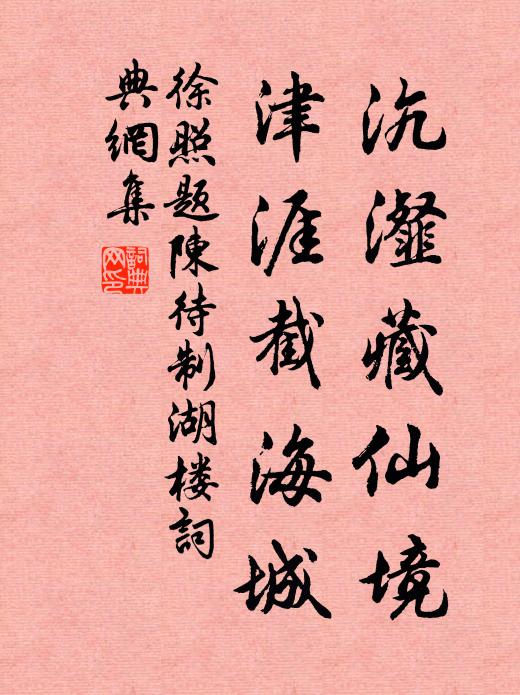 沆瀣藏仙境
津涯截海城
徐照题陳待制湖楼詞
典網集
詞典
网印